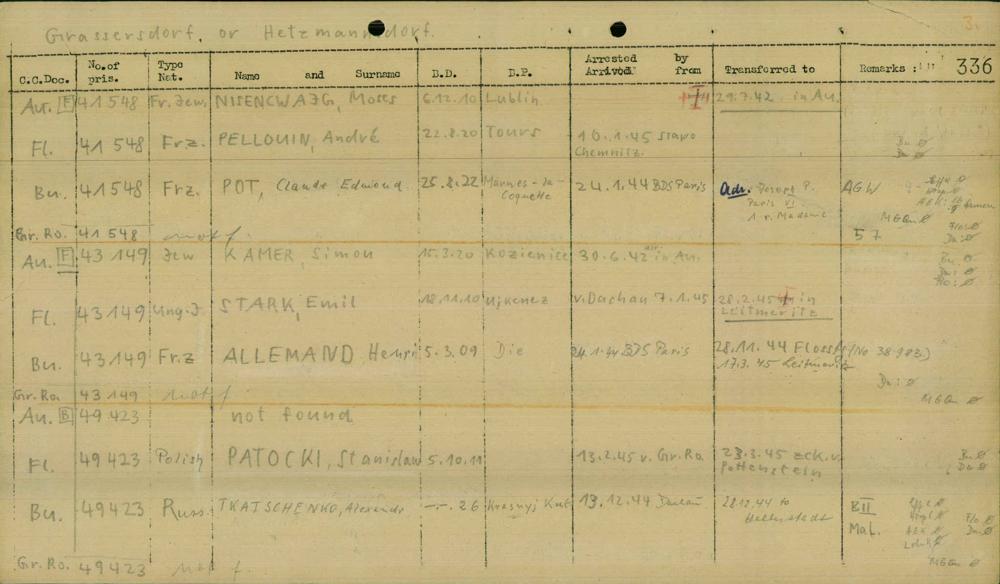 Grassersdorf, or Hetzmannsdorf.
3.
C.C.Doc. No. of pris. Type Nat. Name and Surname B.D. B.P. Arrested Arrived by from Transferred to Remarks : 336
Au. F 41 548 Fr. Jew. NISENCWAJG, Moses 6.12.10 Lublin 29.7.42 in Au.
Fl. 41 548 Frz. PELLOUIN, André 22.8.20 Tours 10.1.45 Stapo
Chemnitz.
Bu. 41548 Frz. POT, Claude Edmond 25.8.22 Marnes-la- 24.1.44 BDS Paris Adr. Joseph P. AGW
Coquette Paris VI
1 r. Madame MGam Ø
Gr. Ro. 41 548 not f. 57
Au. F 43 149 Jew KAMER, Simon 15.3.20 Kozienice 30.6.42 in Au.
Fl. 43149 Ung.J STARK, Emil 18.11.10 v. Dachau 7.1.45 28.2.45 in
Leitmeritz
Bu. 43149 Frz ALLEMAND Henri 5.3.09 Die 24.1.44 BDS Paris 28.11.44 Floss. (No 38 983)
17.3.45 Leitmeritz
Du: Ø
Gr. Ro. 43 149 not f MGam Ø
Au. B 49 423 not found
Fl. 49423 Polish PATOCKI, Stanislaw 5.10.11 13.2.45 v. Gr. Ro. 23.3.45 zck. v.
Pottenstein
Bu. 49423 Russ. TKATSCHENKO, Alexander -.-. 26 Krasnyj Kut 19.12.44 Dachau 28.12.44 to BII
Halberstadt MaL.
Gr. Ro. 49423 not f. MGam Ø